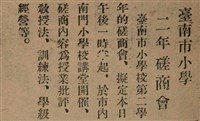 臺南市小學
二二年磋商會
臺南市小學校第二學
年的磋商會、擬定本日
午後一時半起、於市內
南門小學校講堂開催、
磋商內容為授業批評、
敎授法、訓練法、學級
經營等。